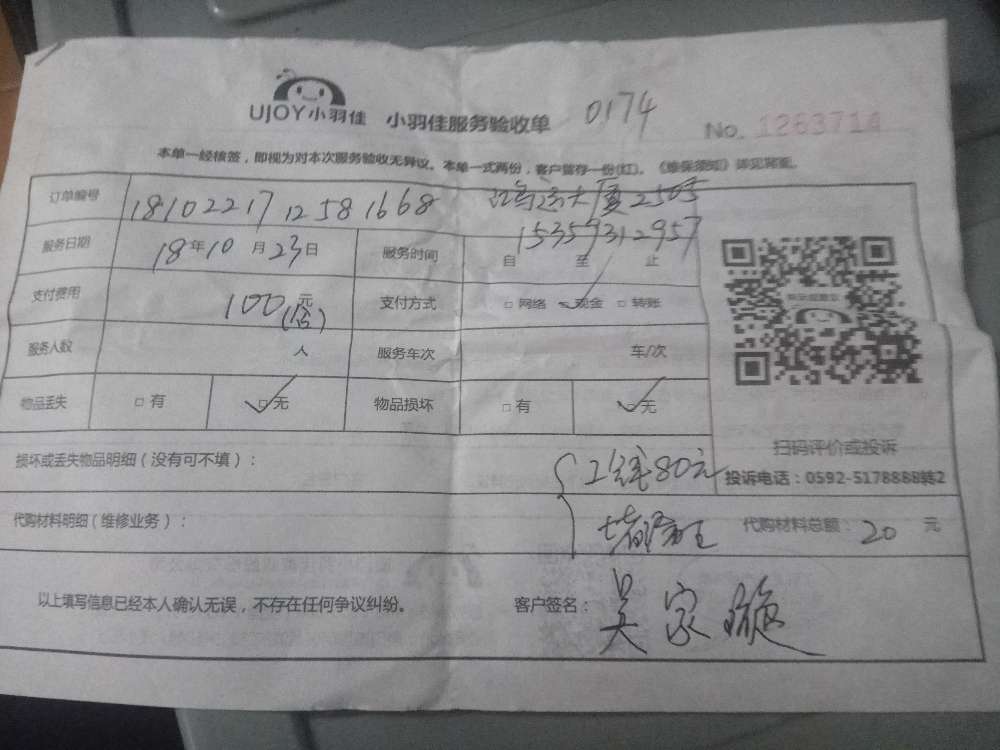 UJOY小羽佳 小羽佳服务验收单 0174 No. 1263714
本单一经核签，即视为对本次服务验收无异议。本单一式两份，客户留存一份(红)。《维保须知》详见背面。
订单编号 18102217 12581668 大厦2505
15359312957
服务日期 18年10月23日 服务时间 自 至 止
支付费用 100元 支付方式 □网络 ✓现金 □转账
服务人数 人 服务车次 车/次
物品丢失 □有 ✓□无 物品损坏 □有 ✓□无
扫码评价或投诉
投诉电话：0592-5178888转2
损坏或丢失物品明细（没有可不填）： 工钱80元
代购材料明细（维修业务）： 堵漏王 代购材料总额：20 元
以上填写信息已经本人确认无误，不存在任何争议纠纷。 客户签名：吴家璇